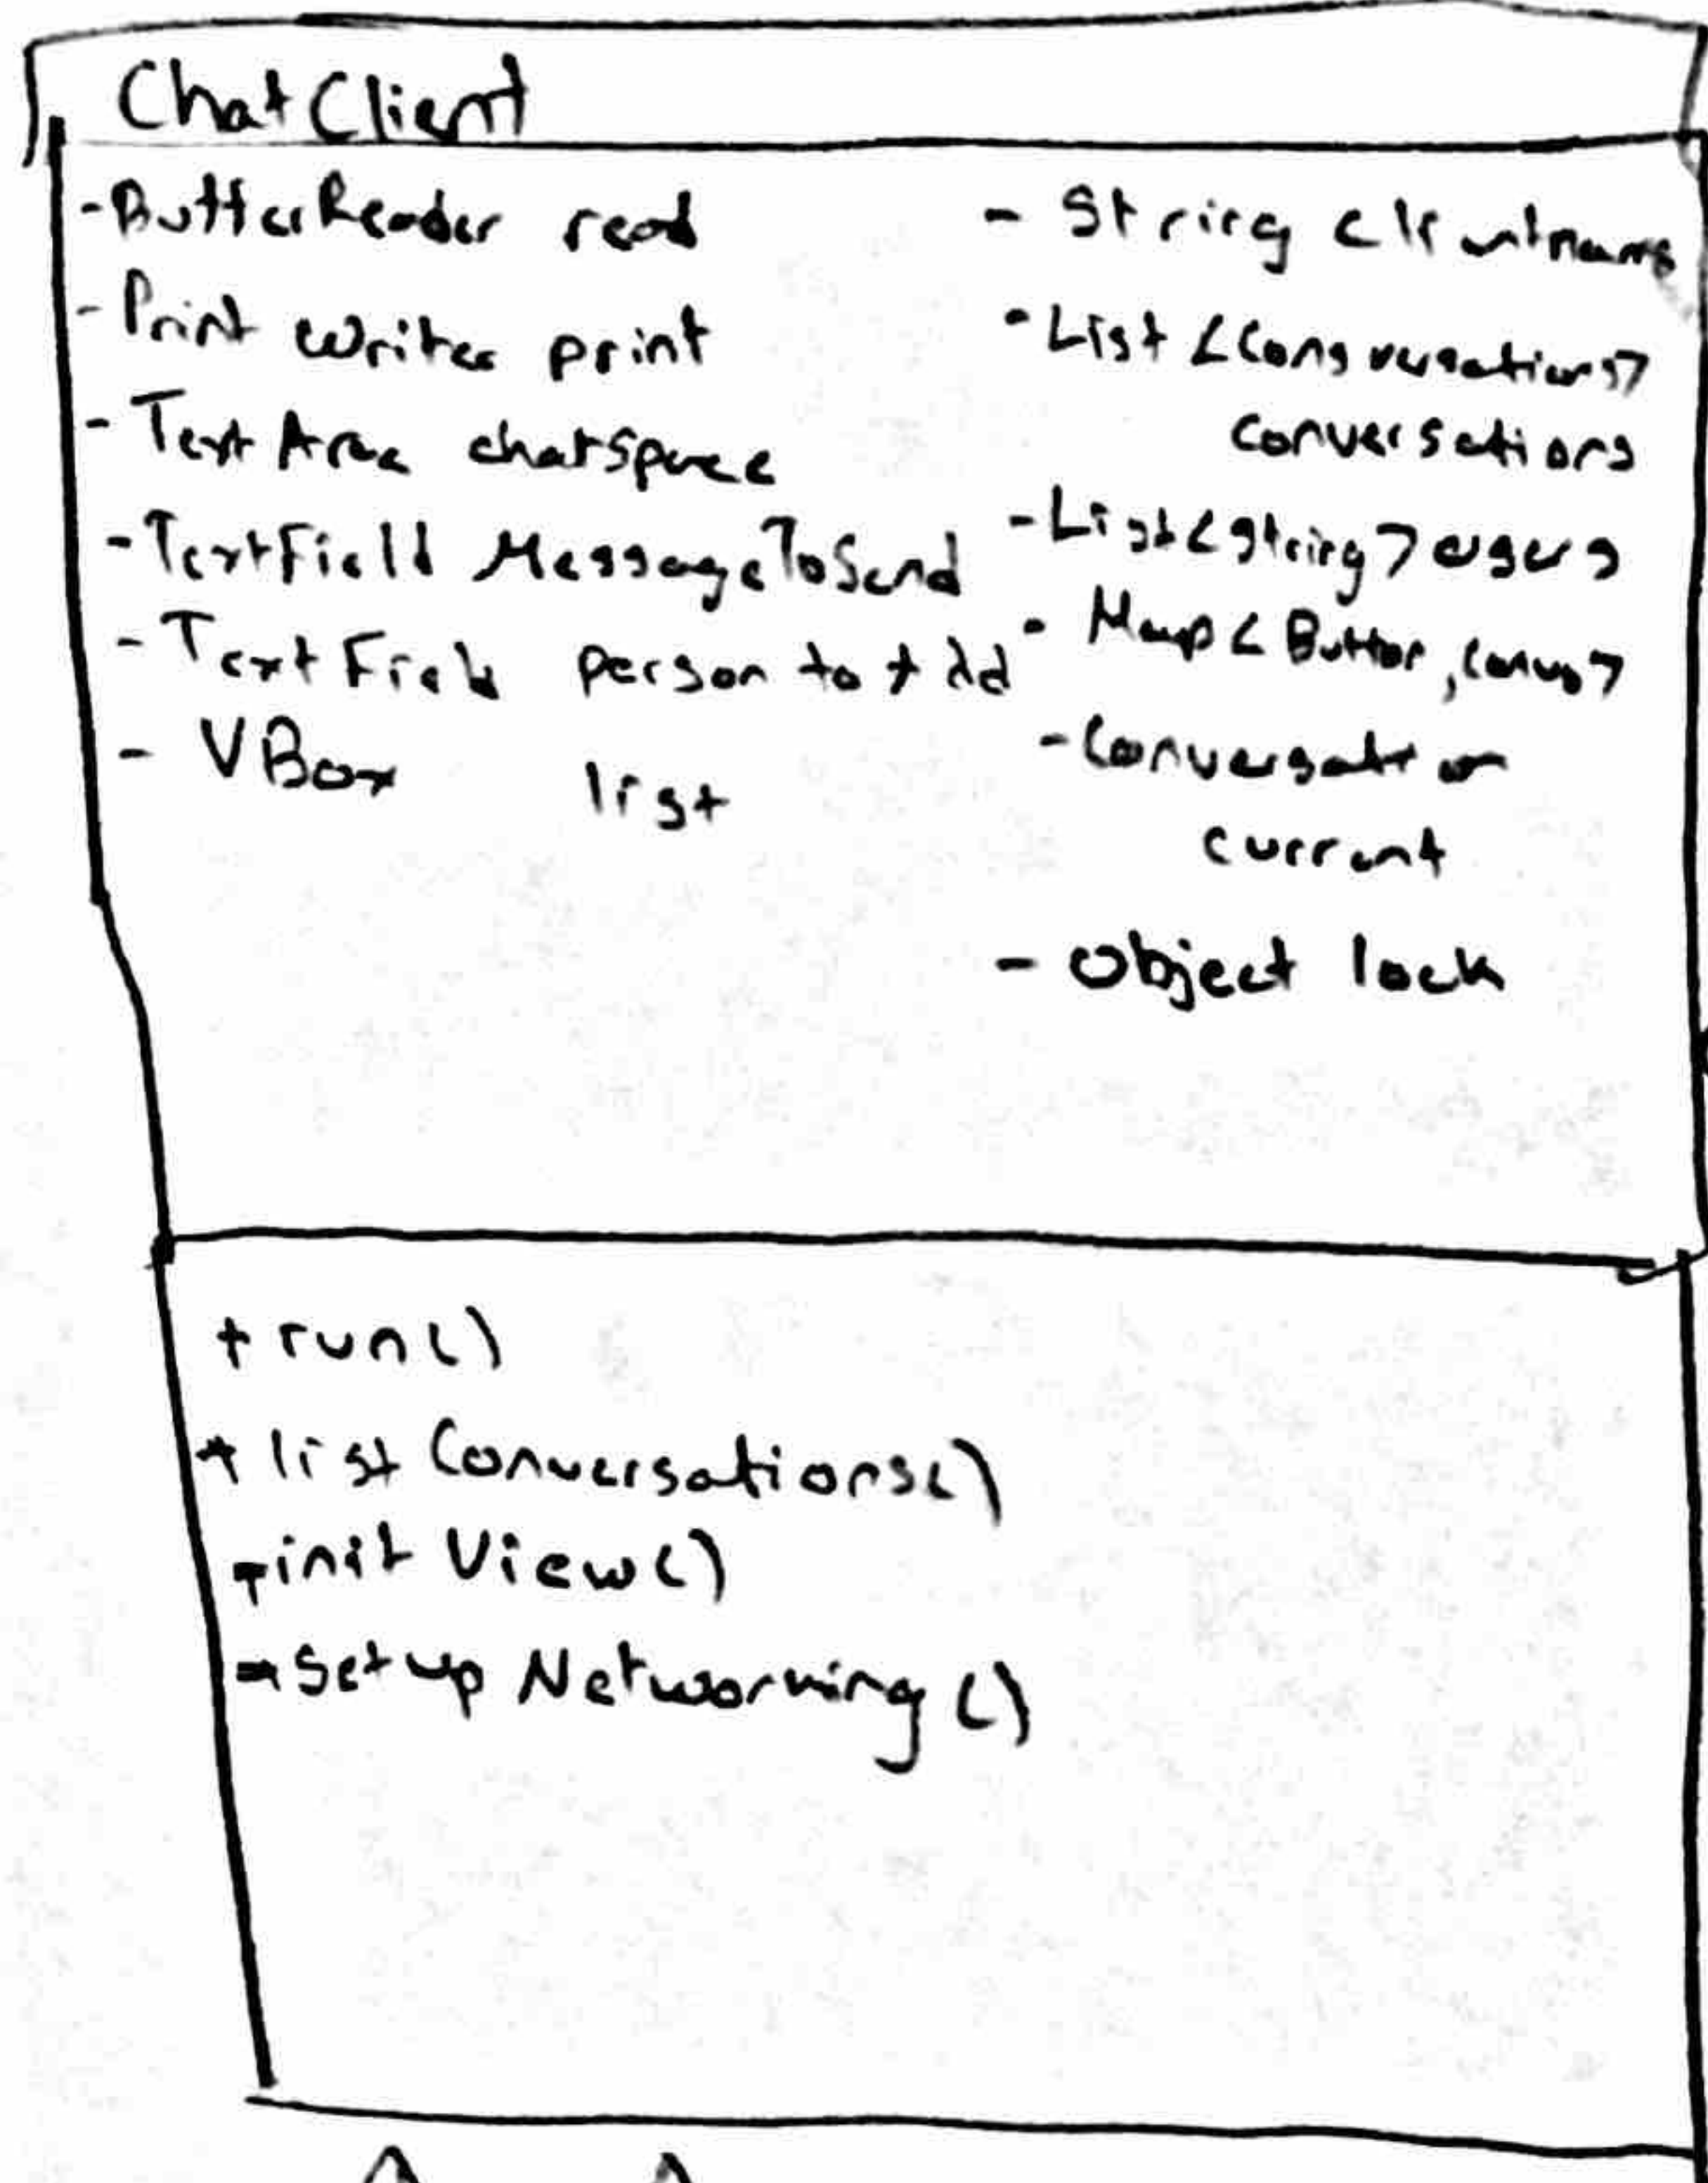 ChatClient
- BufferReader read
- Print Writer print
- TextArea chatSpace
- TextField MessageToSend
- TextField person to Add
- VBox list
- String clientname
- List <Conversations>
conversations
- List<String> users
- Map< Button, Convo>
- Conversation
current
- Object lock
+ run()
+ list Conversations()
init View()
setup Networking ()